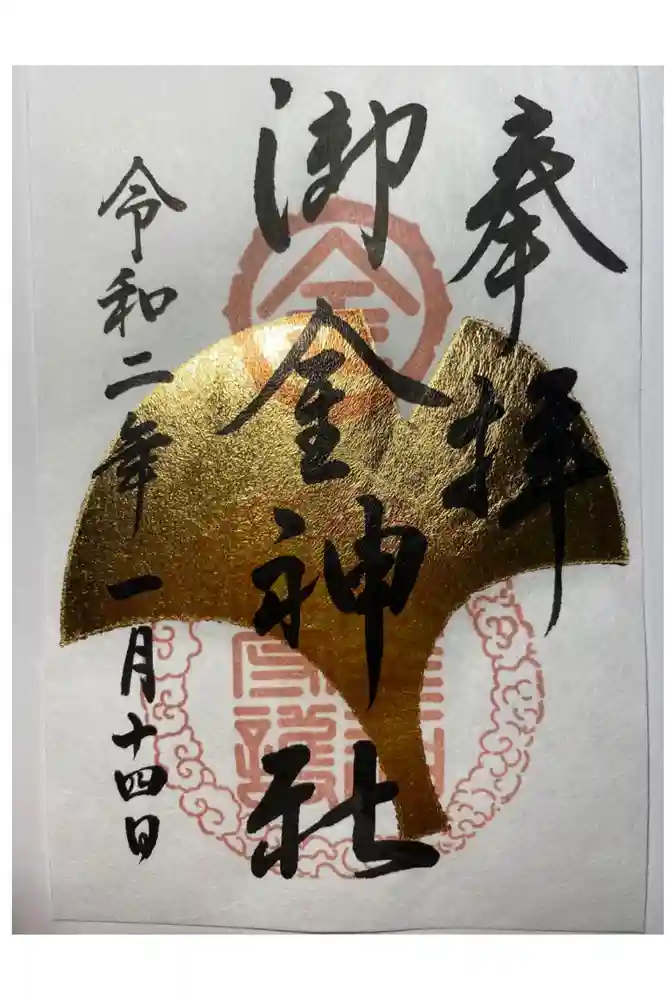 奉拝
御金神社
令和二年一月十四日